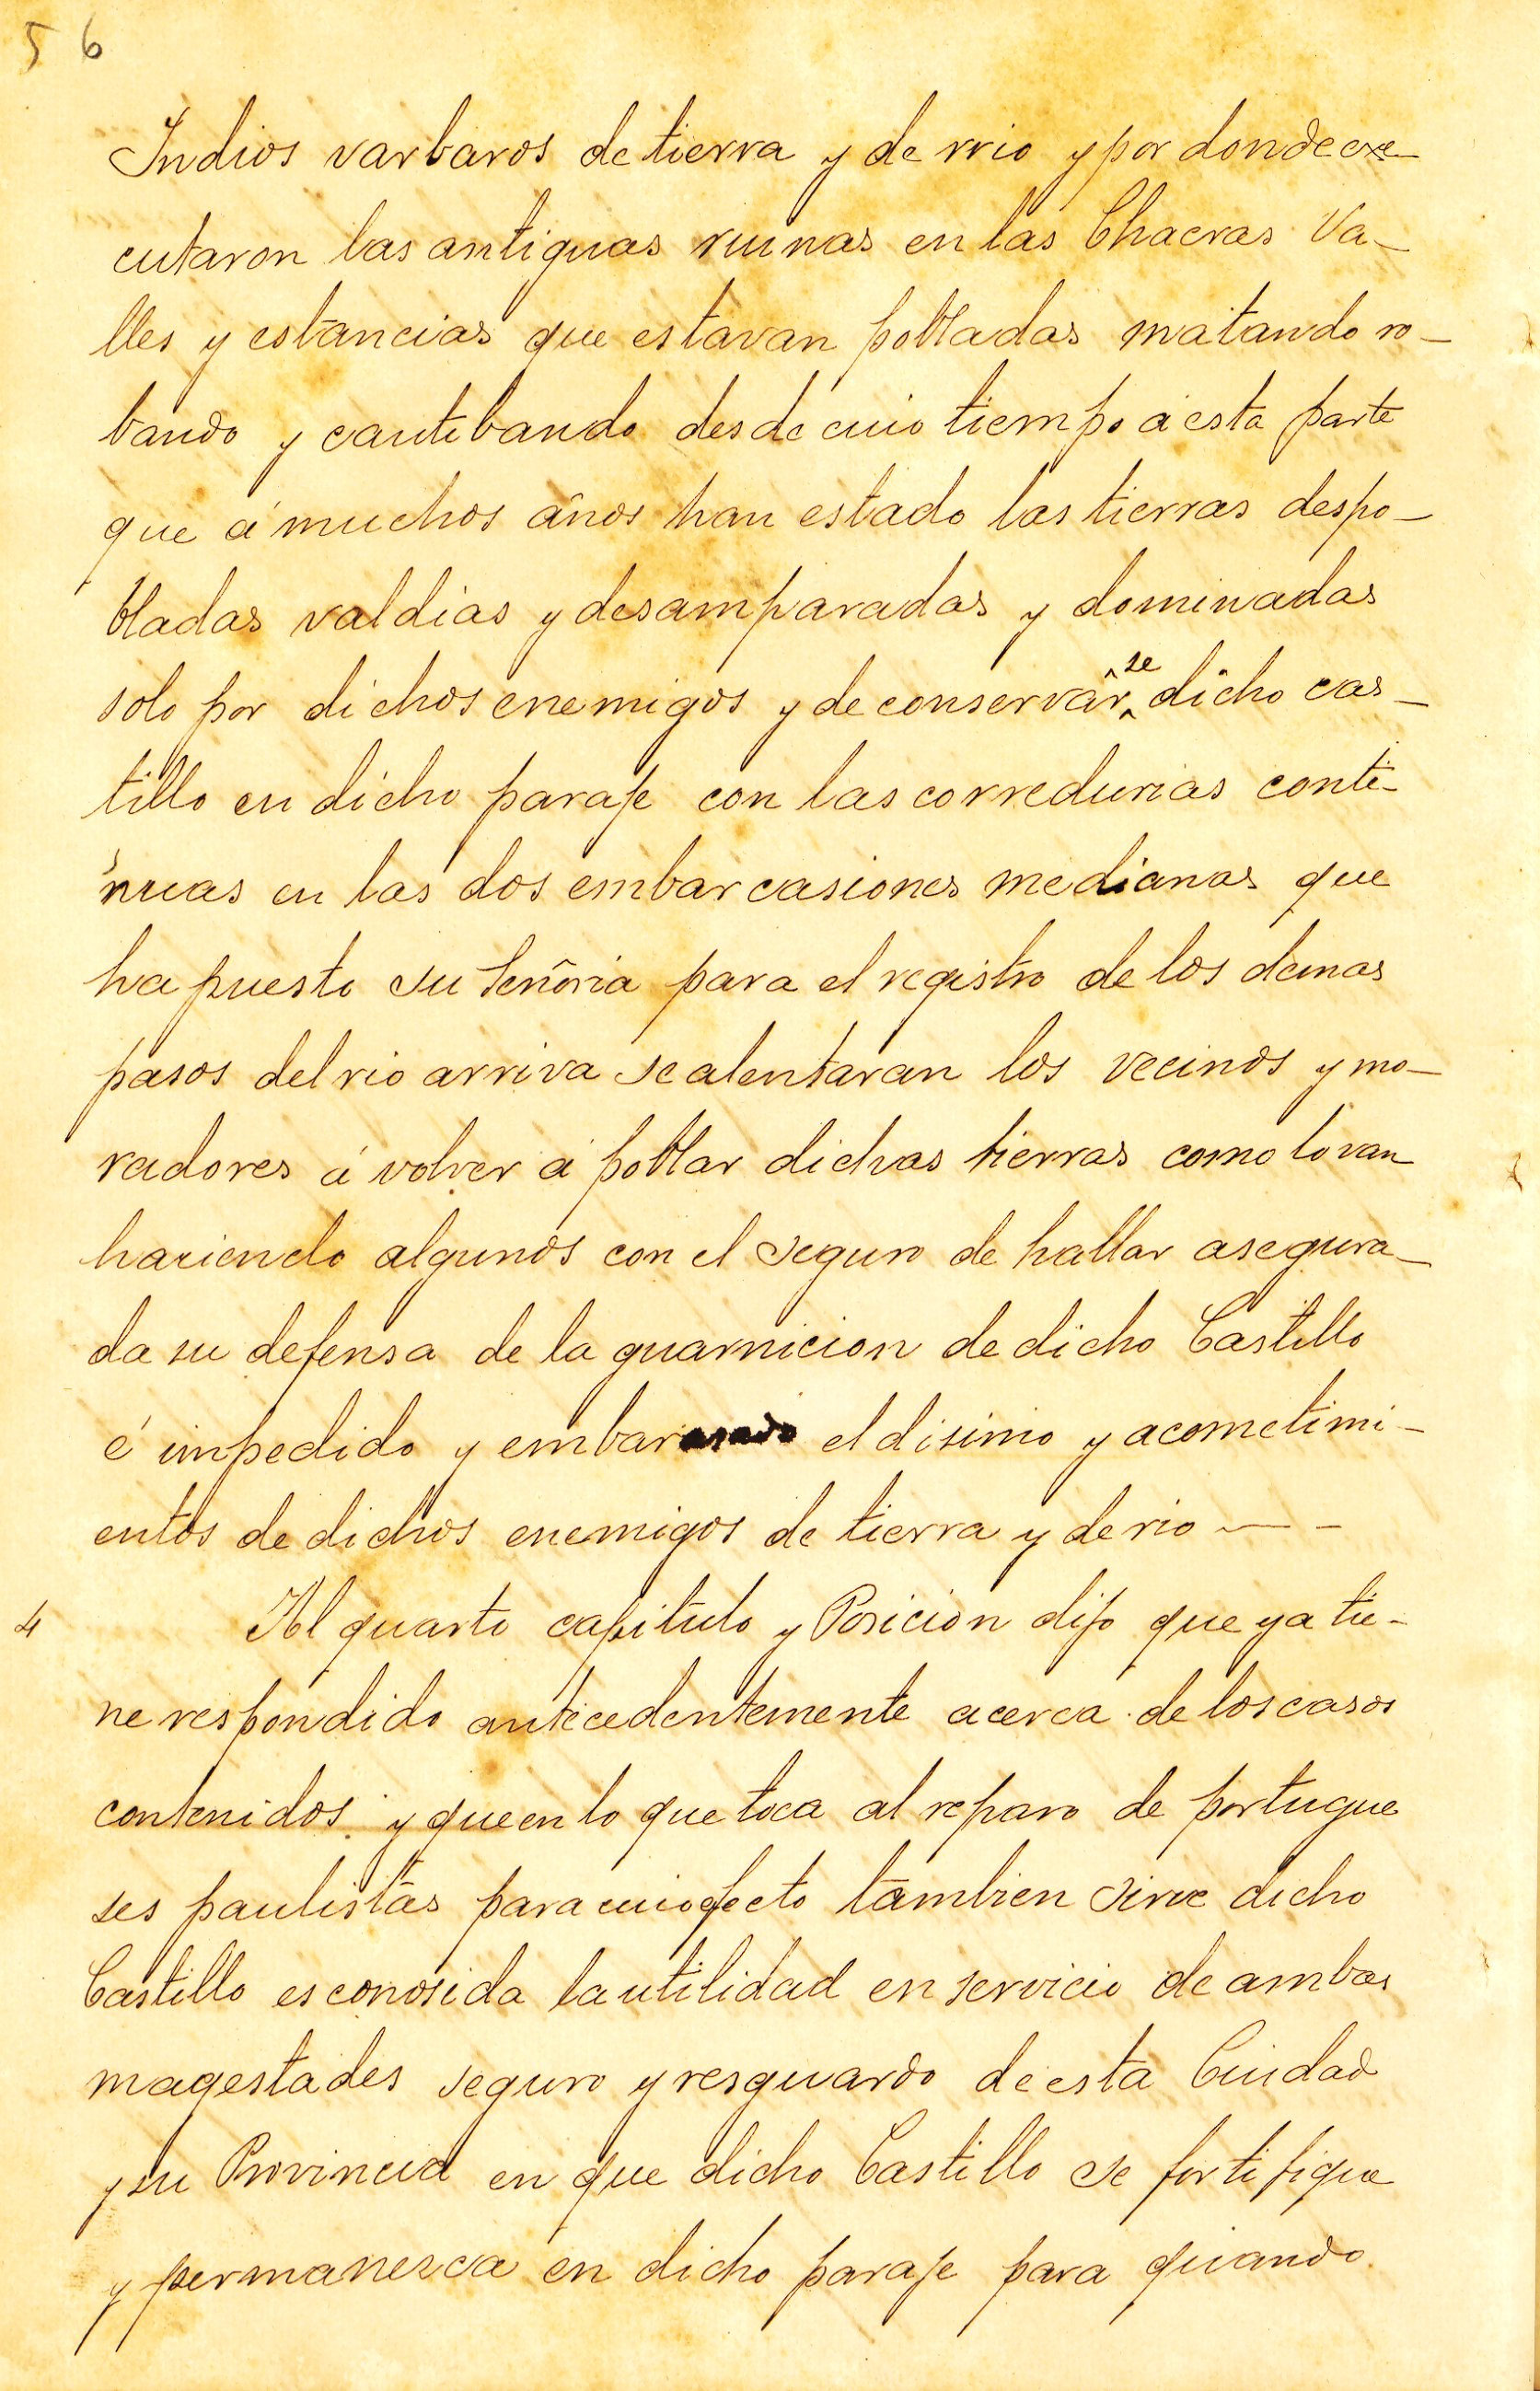 56
Indios varbaros de tierra y de rrio y por donde exe
cutaron las antiguas ruinas en las Chacras Va-
lles y estancias que estavan pobladas matando ro-
bando y cautibando desde cuio tiempo á esta parte
que á muchos años han estado las tierras despo-
bladas valdias y desamparadas y dominadas
solo por dichos enemigos y de conservarse dicho cas-
tillo en dicho paraje con las corredurias conti-
nuas en las dos embarcasiones medianas que
ha puesto su señoria para el registro de los demas
pasos del rio arriva se alentaran los vecinos y mo-
radores á volver á poblar dichas tierras como lo van
haciendo algunos con el seguro de hallar asegura-
da su defensa de la guarnicion de dicho Castillo
é impedido y embarasado el disinio y acometimi-
entos de dichos enemigos de tierra y de rio — -
4 Al quarto capitulo y Posicion dijo que ya tie-
ne respondido antecedentemente acerca de los casos
contenidos y que en lo que toca al reparo de portugue
ses paulistas para cuio efecto tambien sirve dicho
Castillo es conosida la utilidad en servicio de ambas
magestades seguro y resguardo de esta Ciudad
y su Provincia en que dicho Castillo se fortifique
y permanesca en dicho paraje para quando